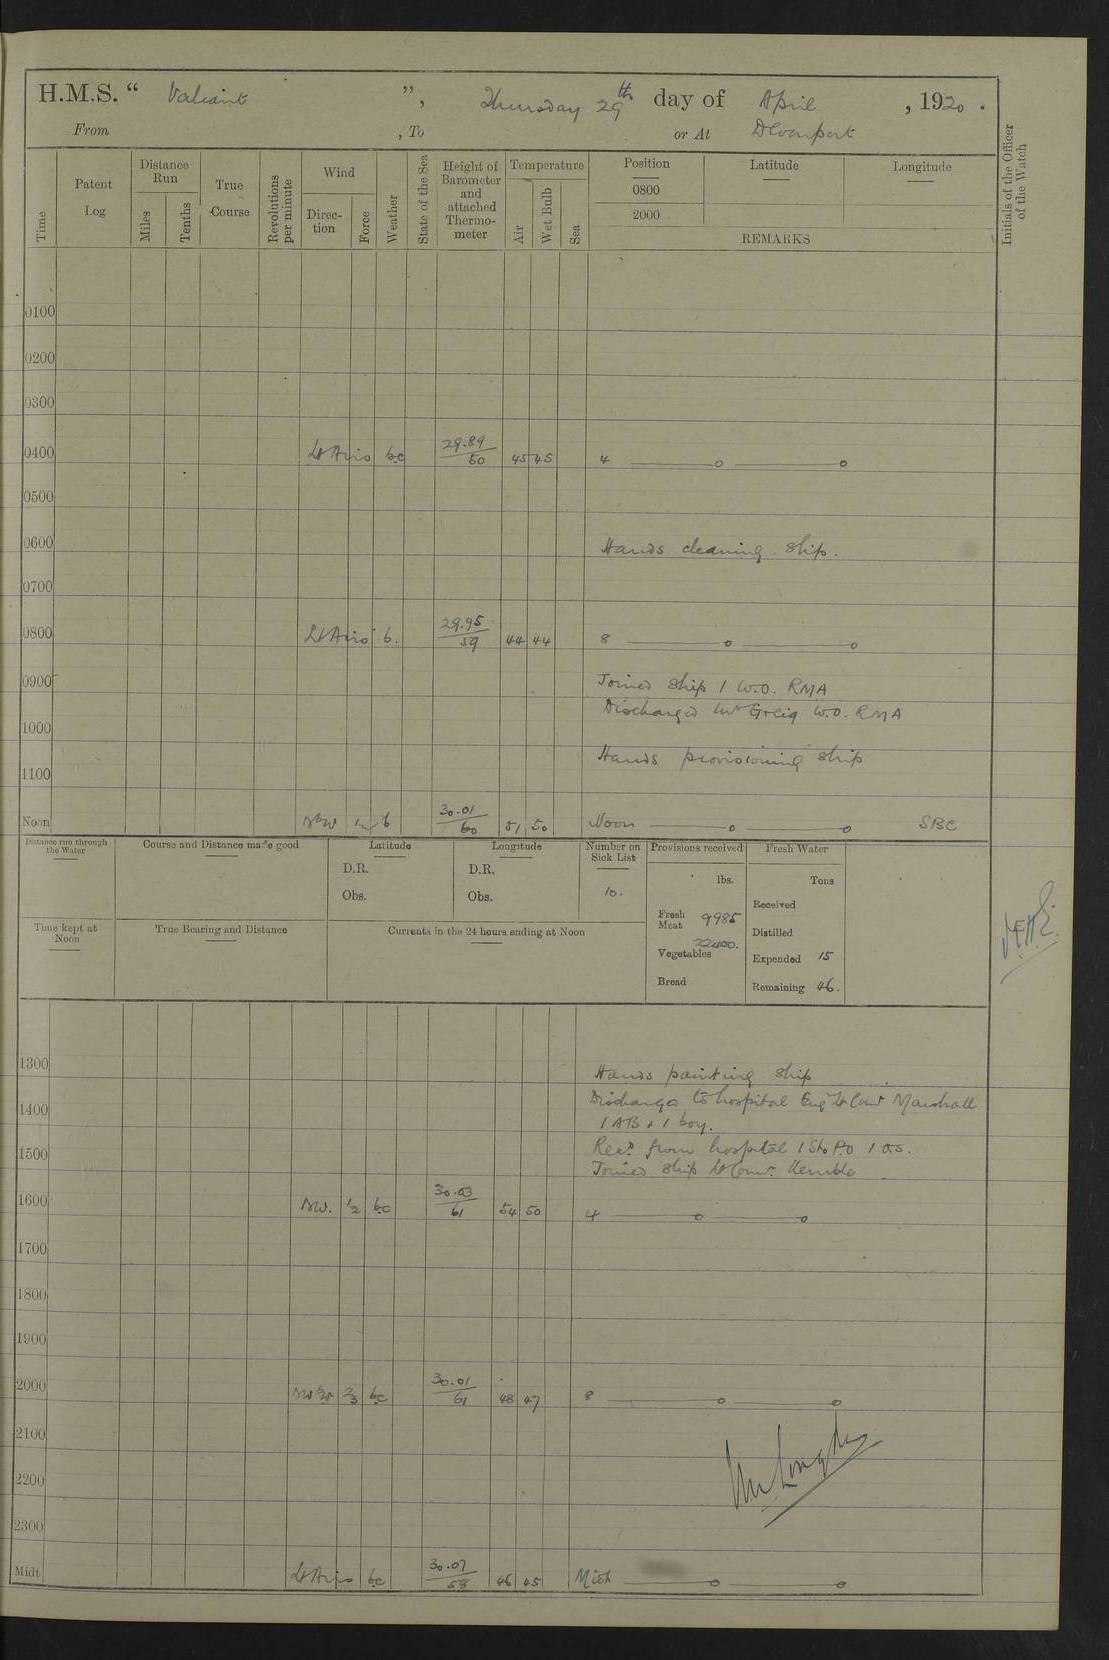 H.M.S. “ Valiant ”, Thursday 29th day of April , 1920 .
From , To or At Devonport
Time
Patent Log
Distance Run
Miles
Tenths
True Course
Revolutions per minute
Wind
Direction
Force
Weather
State of the Sea
Height of Barometer and attached Thermometer
Temperature
Air
Wet Bulb
Sea
Position
0800
2000
Latitude
Longitude
REMARKS
Initials of the Officer of the Watch
0100
0200
0300
0400 Lt Airs bc 29.89/60 45 45 4
0500
0600 Hands cleaning ship.
0700
0800 Lt Airs b. 29.95/59 44 44 8
0900 Joined ship 1 W.O. RMA
Discharged Mr Greig W.O. RMA
1000
Hands provisioning ship
1100
Noon 1/2 b 30.01/60 51 50 Noon SBC
Distance run through the Water
Course and Distance made good
Latitude
D.R.
Obs.
Longitude
D.R.
Obs.
Number on Sick List
10.
Provisions received
lbs.
Fresh Meat 9985
Vegetables 22400.
Bread
Fresh Water
Tons
Received
Distilled
Expended 15
Remaining 46.
Time kept at Noon
True Bearing and Distance
Currents in the 24 hours ending at Noon
1300 Hands painting ship
1400 Discharged to hospital Eng Lt Comr Marshall
1 AB & 1 boy.
1500 Recd from hospital 1 Sto P.O 1 O.S.
Joined ship Lt Comr. Kemble
1600 NW. 1/2 bc 30.03/61 54 50 4
1700
1800
1900
2000 2/3 bc 30.01/61 48 47 8
2100
2200
2300
Midt Lt Airs bc 30.07/58 46 45 Midt